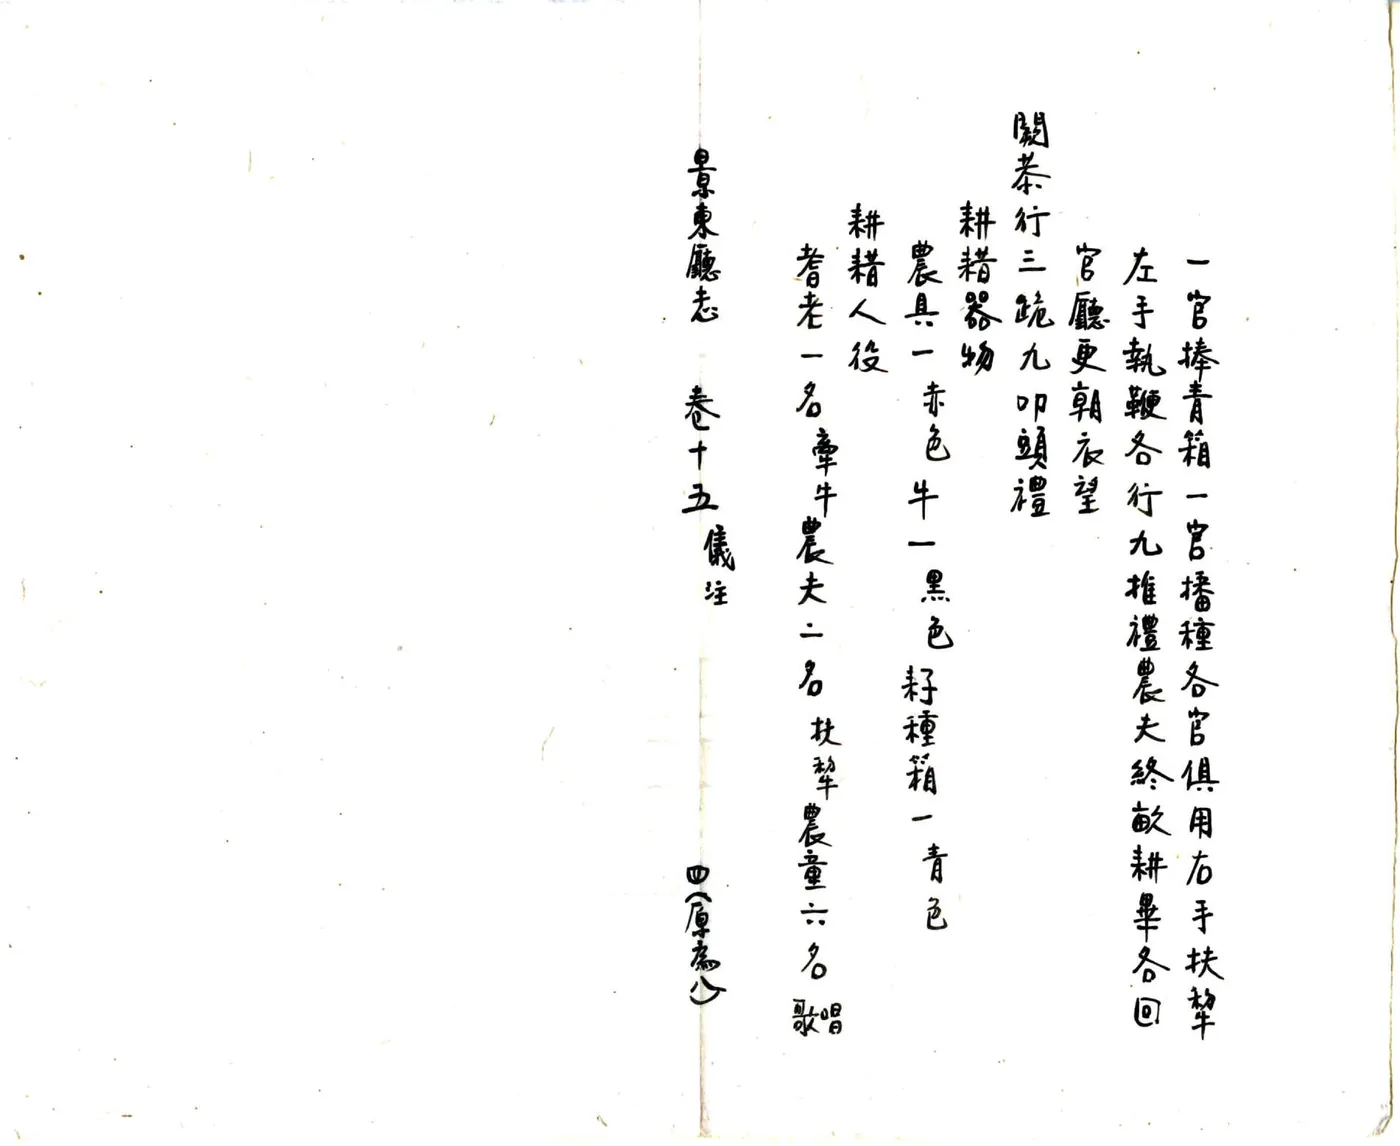 一官捧青箱一官播種各官俱用右手扶犂
左手執鞭各行九推禮農夫終畝耕畢各回
官廳更朝衣望
闕恭行三跪九叩頭禮
耕耤器物
農具一赤色牛一黑色耔種箱一青色
耕耤人役
耆老一名牽牛農夫二名扶犂農童六名歌唱
景東廳志 卷十五 儀注 四（原為八）